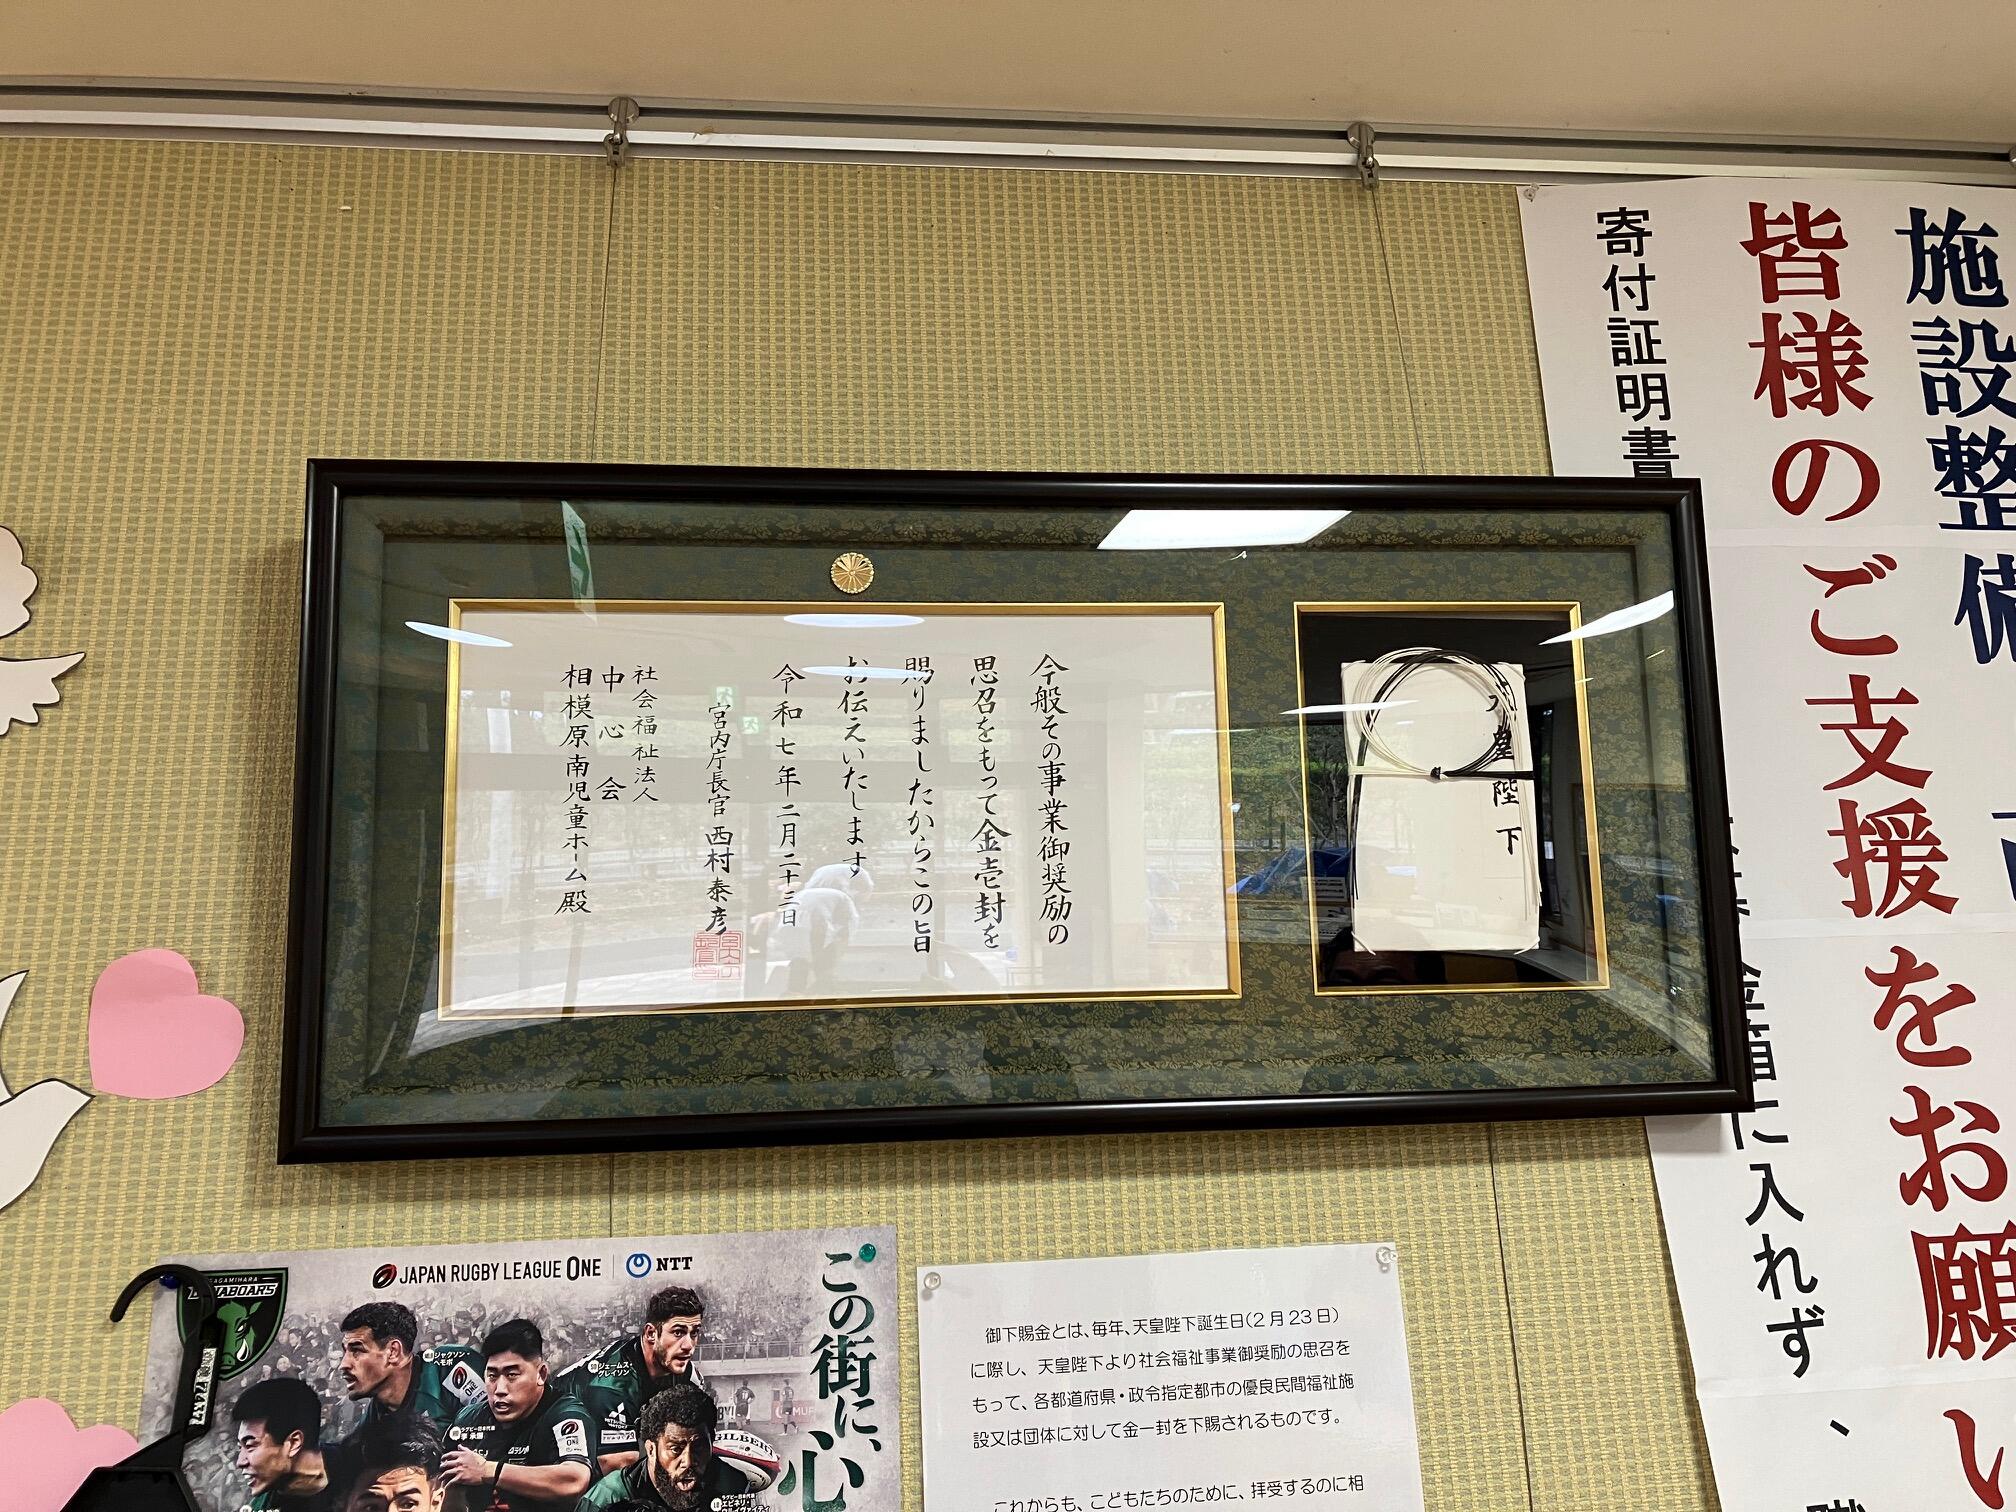 施設整備
皆様のご支援をお願い
寄付証明書
箱に入れず、職
天皇陛下
今般その事業御奨励の
思召をもって金壱封を
賜りましたからこの旨
お伝えいたします
令和七年二月二十三日
宮内庁長官 西村泰彦
社会福祉法人
中心会
相模原南児童ホーム殿
JAPAN RUGBY LEAGUE ONE
NTT
この街に、心
ジャクソン・
ヘモポ
ジェームス・
グレイソン
GILBERT
御下賜金とは、毎年、天皇陛下誕生日(2月23日)
に際し、天皇陛下より社会福祉事業御奨励の思召を
もって、各都道府県・政令指定都市の優良民間福祉施
設又は団体に対して金一封を下賜されるものです。
これからも、こどもたちのために、拝受するのに相